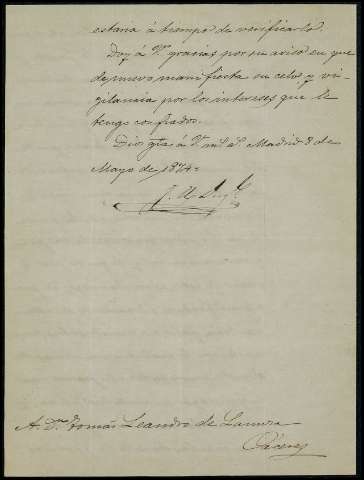 estaria á tiempo de verificarlo.
Doy á V. gracias por su aviso en que
de nuevo manifiesta su celo y vi-
gilancia por los intereses que le
tengo confiados.
Dios gue á V. ms. as. Madrid 8 de
Mayo de 1874=
A Dn. Tomás Leandro de
Cáceres